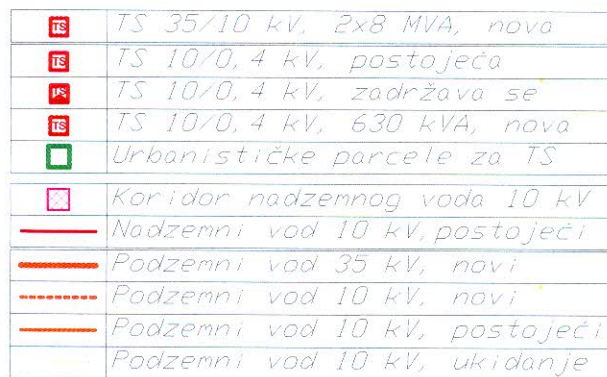 TS TS 35/10 kV, 2x8 MVA, nova
TS TS 10/0,4 kV, postojeća
TS 10/0,4 kV, zadržava se
TS TS 10/0,4 kV, 630 kVA, nova
Urbanističke parcele za TS
Koridor nadzemnog voda 10 kV
Nadzemni vod 10 kV,postojeći
Podzemni vod 35 kV, novi
Podzemni vod 10 kV, novi
Podzemni vod 10 kV, postojeći
Podzemni vod 10 kV, ukidanje